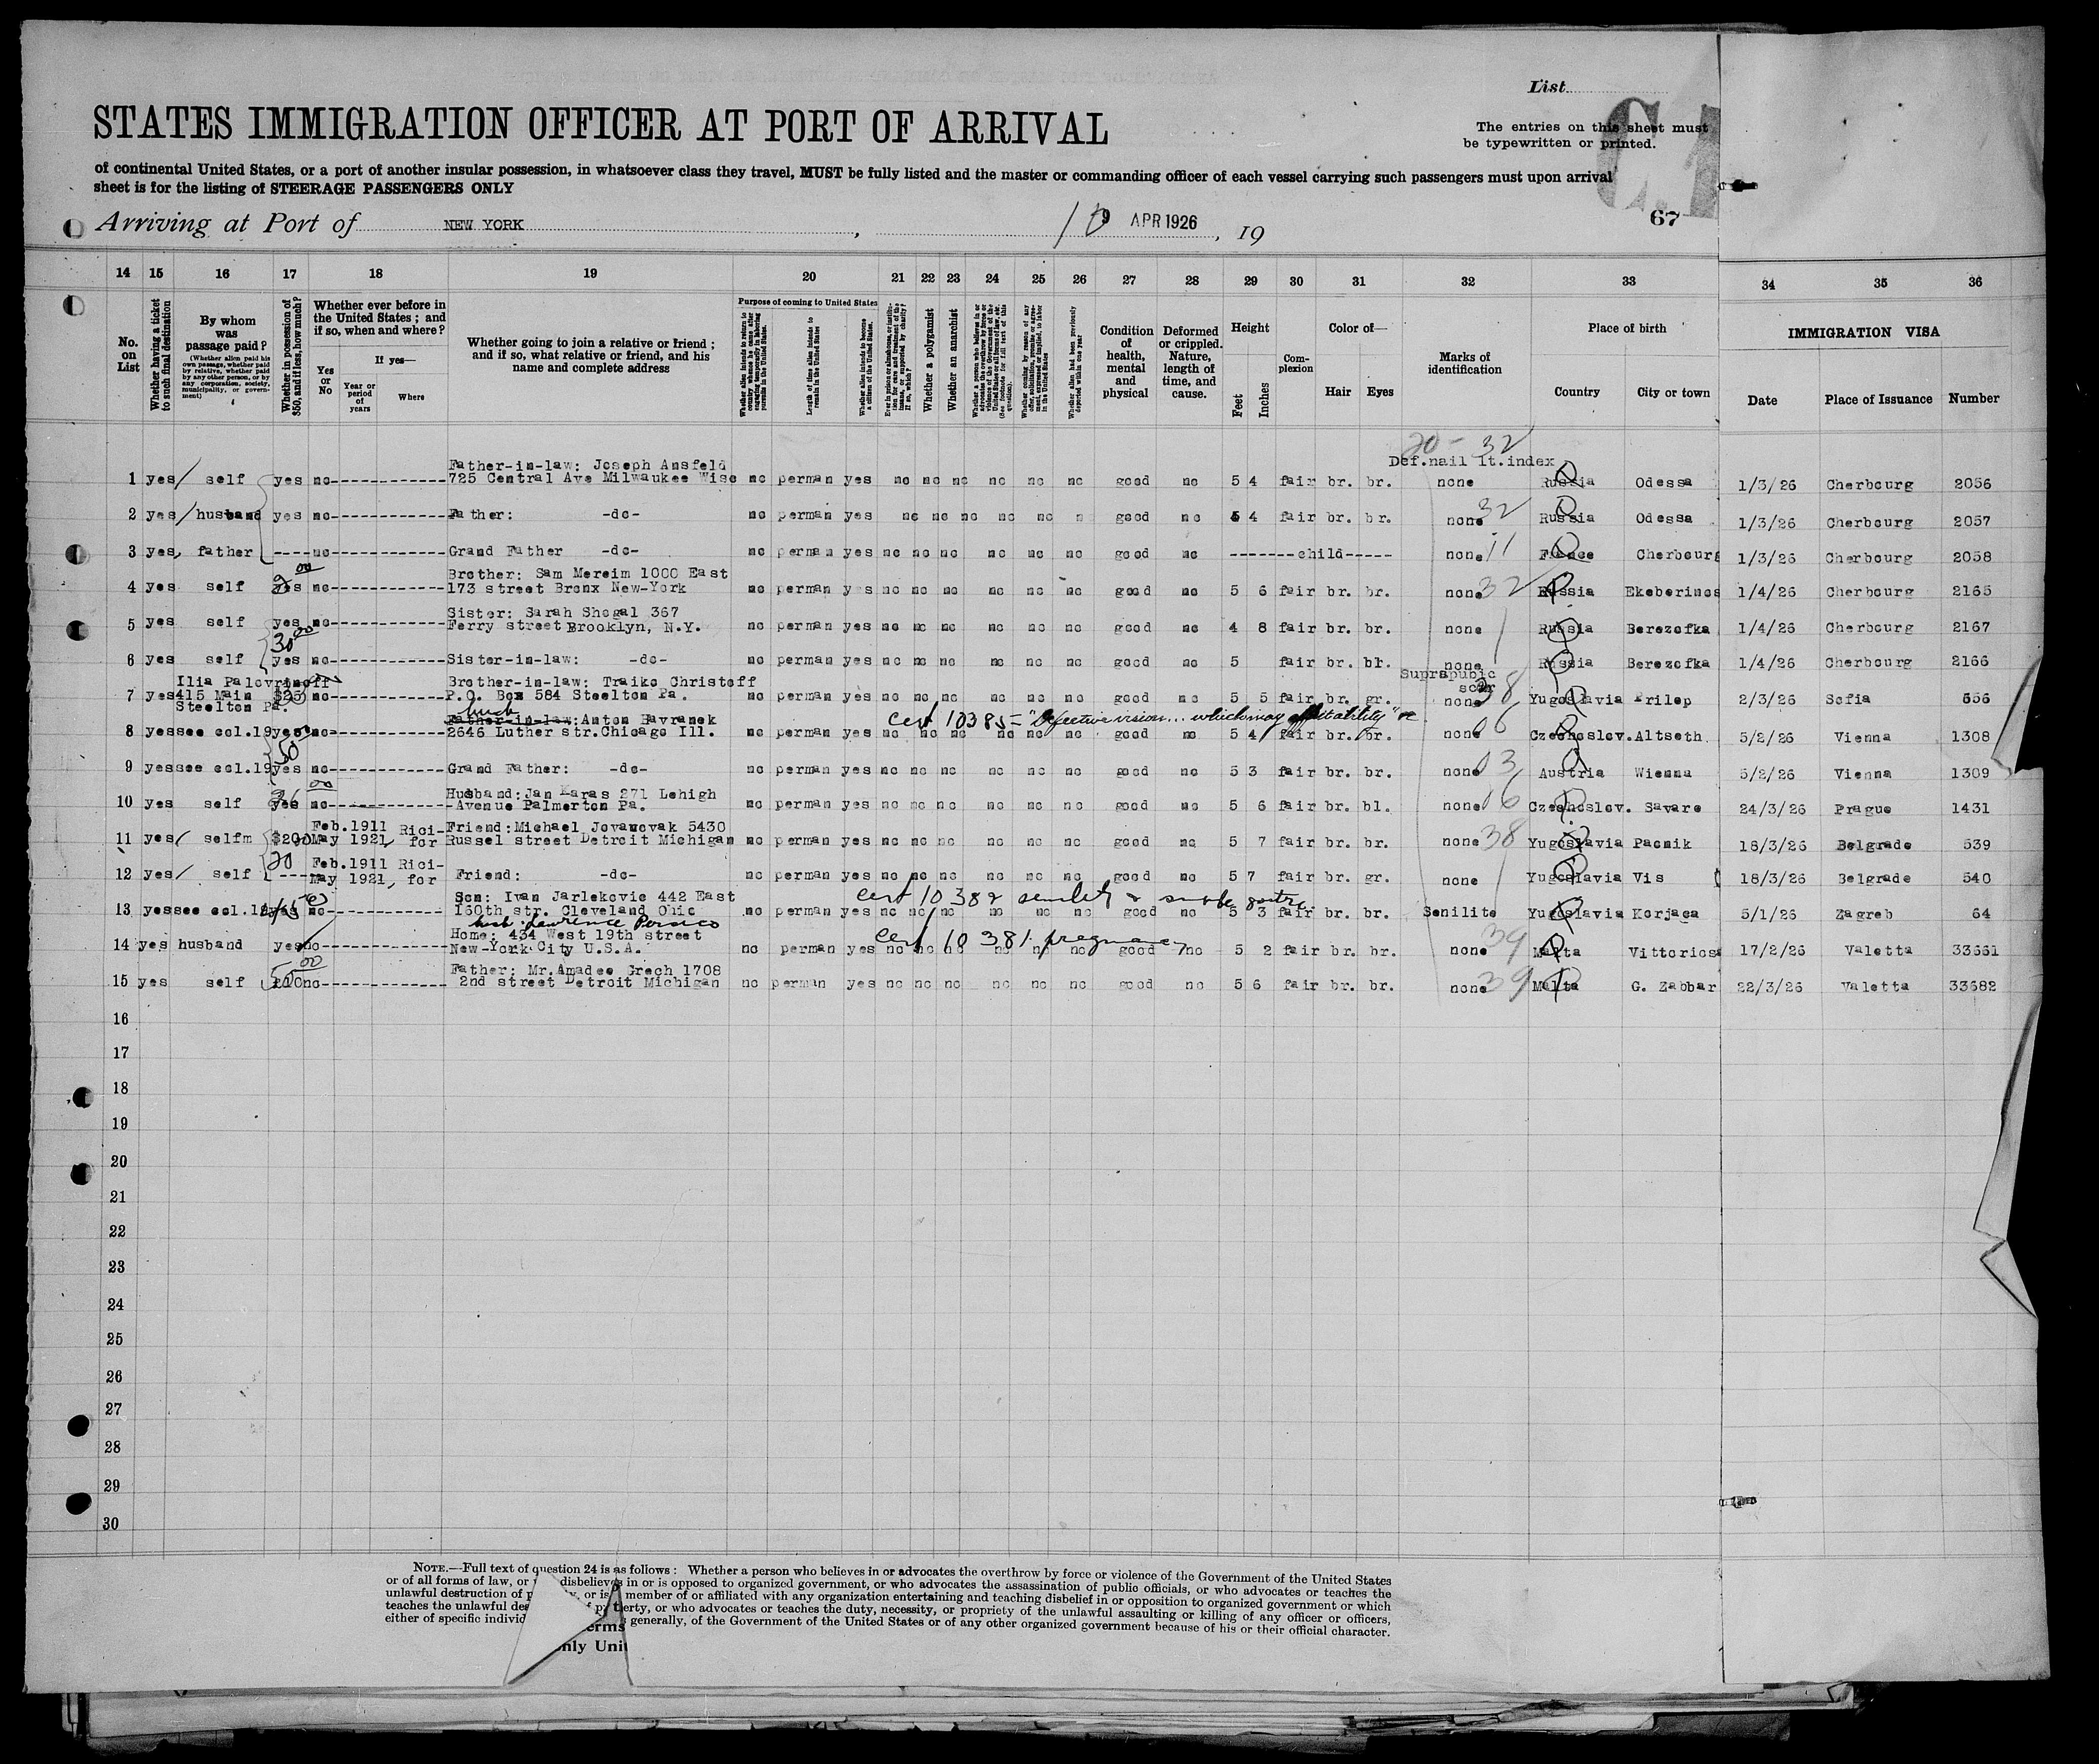 List
STATES IMMIGRATION OFFICER AT PORT OF ARRIVAL
The entries on this sheet must
be typewritten or printed.
of continental United States, or a port of another insular possession, in whatsoever class they travel, MUST be fully listed and the master or commanding officer of each vessel carrying such passengers must upon arrival
sheet is for the listing of STEERAGE PASSENGERS ONLY
67
Arriving at Port of NEW YORK, 10 APR 1926, 19
14 15 16 17 18 19 20 21 22 23 24 25 26 27 28 29 30 31 32 33 34 35 36
No. on List
Whether having a ticket to such final destination
By whom was passage paid?
(Whether alien paid his own passage, whether paid by relative, whether paid by any other person, or by any corporation, society, municipality, or government)
Whether in possession of $50, and if less, how much?
Whether ever before in the United States; and if so, when and where?
Yes or No
If yes—
Year or period of years
Where
Whether going to join a relative or friend; and if so, what relative or friend, and his name and complete address
Purpose of coming to United States
Length of time alien intends to remain in the United States
Whether alien intends to become a citizen of the United States.
Whether a polygamist
Whether an anarchist
Whether alien had been previously deported within one year
Condition of health, mental and physical
Deformed or crippled. Nature, length of time, and cause.
Height
Feet Inches
Complexion
Color of—
Hair Eyes
Marks of identification
Place of birth
Country City or town
IMMIGRATION VISA
Date Place of Issuance Number
20 - 32
Father-in-law: Joseph Ansfeld Def.nail lt.index
1 yes self yes no 725 Central Ave Milwaukee Wisc no perman yes no no no no no no good no 5 4 fair br. br. none Russia Odessa 1/3/26 Cherbourg 2056
2 yes husband yes no Father: -do- no perman yes no no no no no n good no 5 4 fair br. br. none 32 Russia Odessa 1/3/26 Cherbourg 2057
3 yes father ----no Grand Father -do- no perman yes no no no no no no good no -------child----- none 11 France Cherbourg 1/3/26 Cherbourg 2058
Brother: Sam Mereim 1000 East
4 yes self yes no 173 street Bronx New-York no perman yes no no no no no no good no 5 6 fair br. br. none 32 Russia Ekeberinos 1/4/26 Cherbourg 2165
Sister: Sarah Shogal 367
5 yes self yes no Ferry street Brooklyn, N.Y. no perman yes no no no no no no good no 4 8 fair br. br. none Russia Berezofka 1/4/26 Cherbourg 2167
30 00
6 yes self yes no Sister-in-law: -do- no perman yes no no no no no no good no 5 fair br. bl. none Russia Berezofka 1/4/26 Cherbourg 2166
Ilia Palovrinoff Brother-in-law: Traiko Christoff Suprapubic scar
7 yes 415 Main $25 no P.O. Box 584 Steelton Pa. no perman yes no no no no no no good no 5 5 fair br. gr. none 38 Yugoslavia Prilep 2/3/26 Sofia 556
Steelton Pa.
Father-in-law: Anton Havranek cert 10385 = "Defective vision... which may affect ability"
8 yes see col.19 yes no 2646 Luther str.Chicago Ill. no perman yes no no no no no no good no 5 4 fair br. br. none 06 Czechoslov. Altseth 5/2/26 Vienna 1308
50
9 yes see col.19 yes no Grand Father: -do- no perman yes no no no no no no good no 5 3 fair br. br. none 03 Austria Wienna 5/2/26 Vienna 1309
Husband: Jan Karas 271 Lehigh
10 yes self yes no Avenue Palmerton Pa. no perman yes no no no no no no good no 5 6 fair br. bl. none 06 Czechoslov. Savare 24/3/26 Prague 1431
Feb.1911 Rici- Friend: Michael Jovanovak 5430
11 yes selfm $20 May 1921, for Russel street Detroit Michigan no perman yes no no no no no no good no 5 7 fair br. br. none 38 Yugoslavia Pacnik 18/3/26 Belgrade 539
20 Feb.1911 Rici-
12 yes self ---- May 1921, for Friend: -do- no perman yes no no no no no no good no 5 7 fair br. gr. none Yugoslavia Vis 18/3/26 Belgrade 540
Son: Ivan Jarlekovic 442 East cert 10382 senility &
13 yes see col.19 yes no 160th str. Cleveland Ohio no perman yes no no no no no no good no 5 3 fair br. br. Senilite Yugoslavia Korjaca 5/1/26 Zagreb 64
husb: Lawrence Persico
Home: 434 West 19th street cert 10381 pregnancy
14 yes husband yes no New-York City U.S.A. no perman yes no no no no no no good no 5 2 fair br. br. none 39 Malta Vittorios 17/2/26 Valetta 33661
Father: Mr.Amadee Grech 1708
15 yes self no 2nd street Detroit Michigan no perman yes no no no no no no good no 5 6 fair br. br. none 39 Malta G. Zabbar 22/3/26 Valetta 33682
16
17
18
19
20
21
22
23
24
25
26
27
28
29
30
NOTE.—Full text of question 24 is as follows: Whether a person who believes in or advocates the overthrow by force or violence of the Government of the United States
or of all forms of law, or disbelieves in or is opposed to organized government, or who advocates the assassination of public officials, or who advocates or teaches the
unlawful destruction of p, or is member of or affiliated with any organization entertaining and teaching disbelief in or opposition to organized government or which
teaches the unlawful des perty, or who advocates or teaches the duty, necessity, or propriety of the unlawful assaulting or killing of any officer or officers,
either of specific individ generally, of the Government of the United States or of any other organized government because of his or their official character.
erms
nly Unit